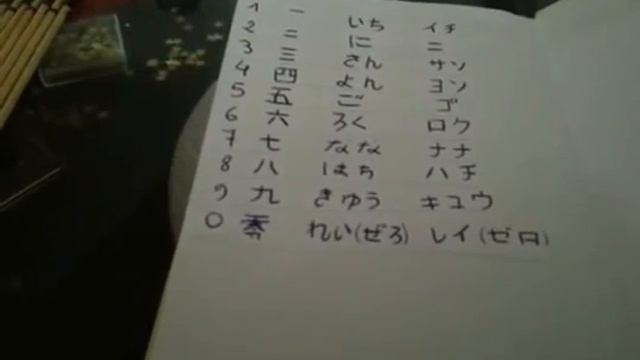 1 一 いち イチ
2 二 に ニ
3 三 さん サソ
4 四 よん ヨソ
5 五 ご ゴ
6 六 ろく ロク
7 七 なな ナナ
8 八 はち ハチ
9 九 きゅう キュウ
0 零 れい(ぜろ) レイ(ゼロ)